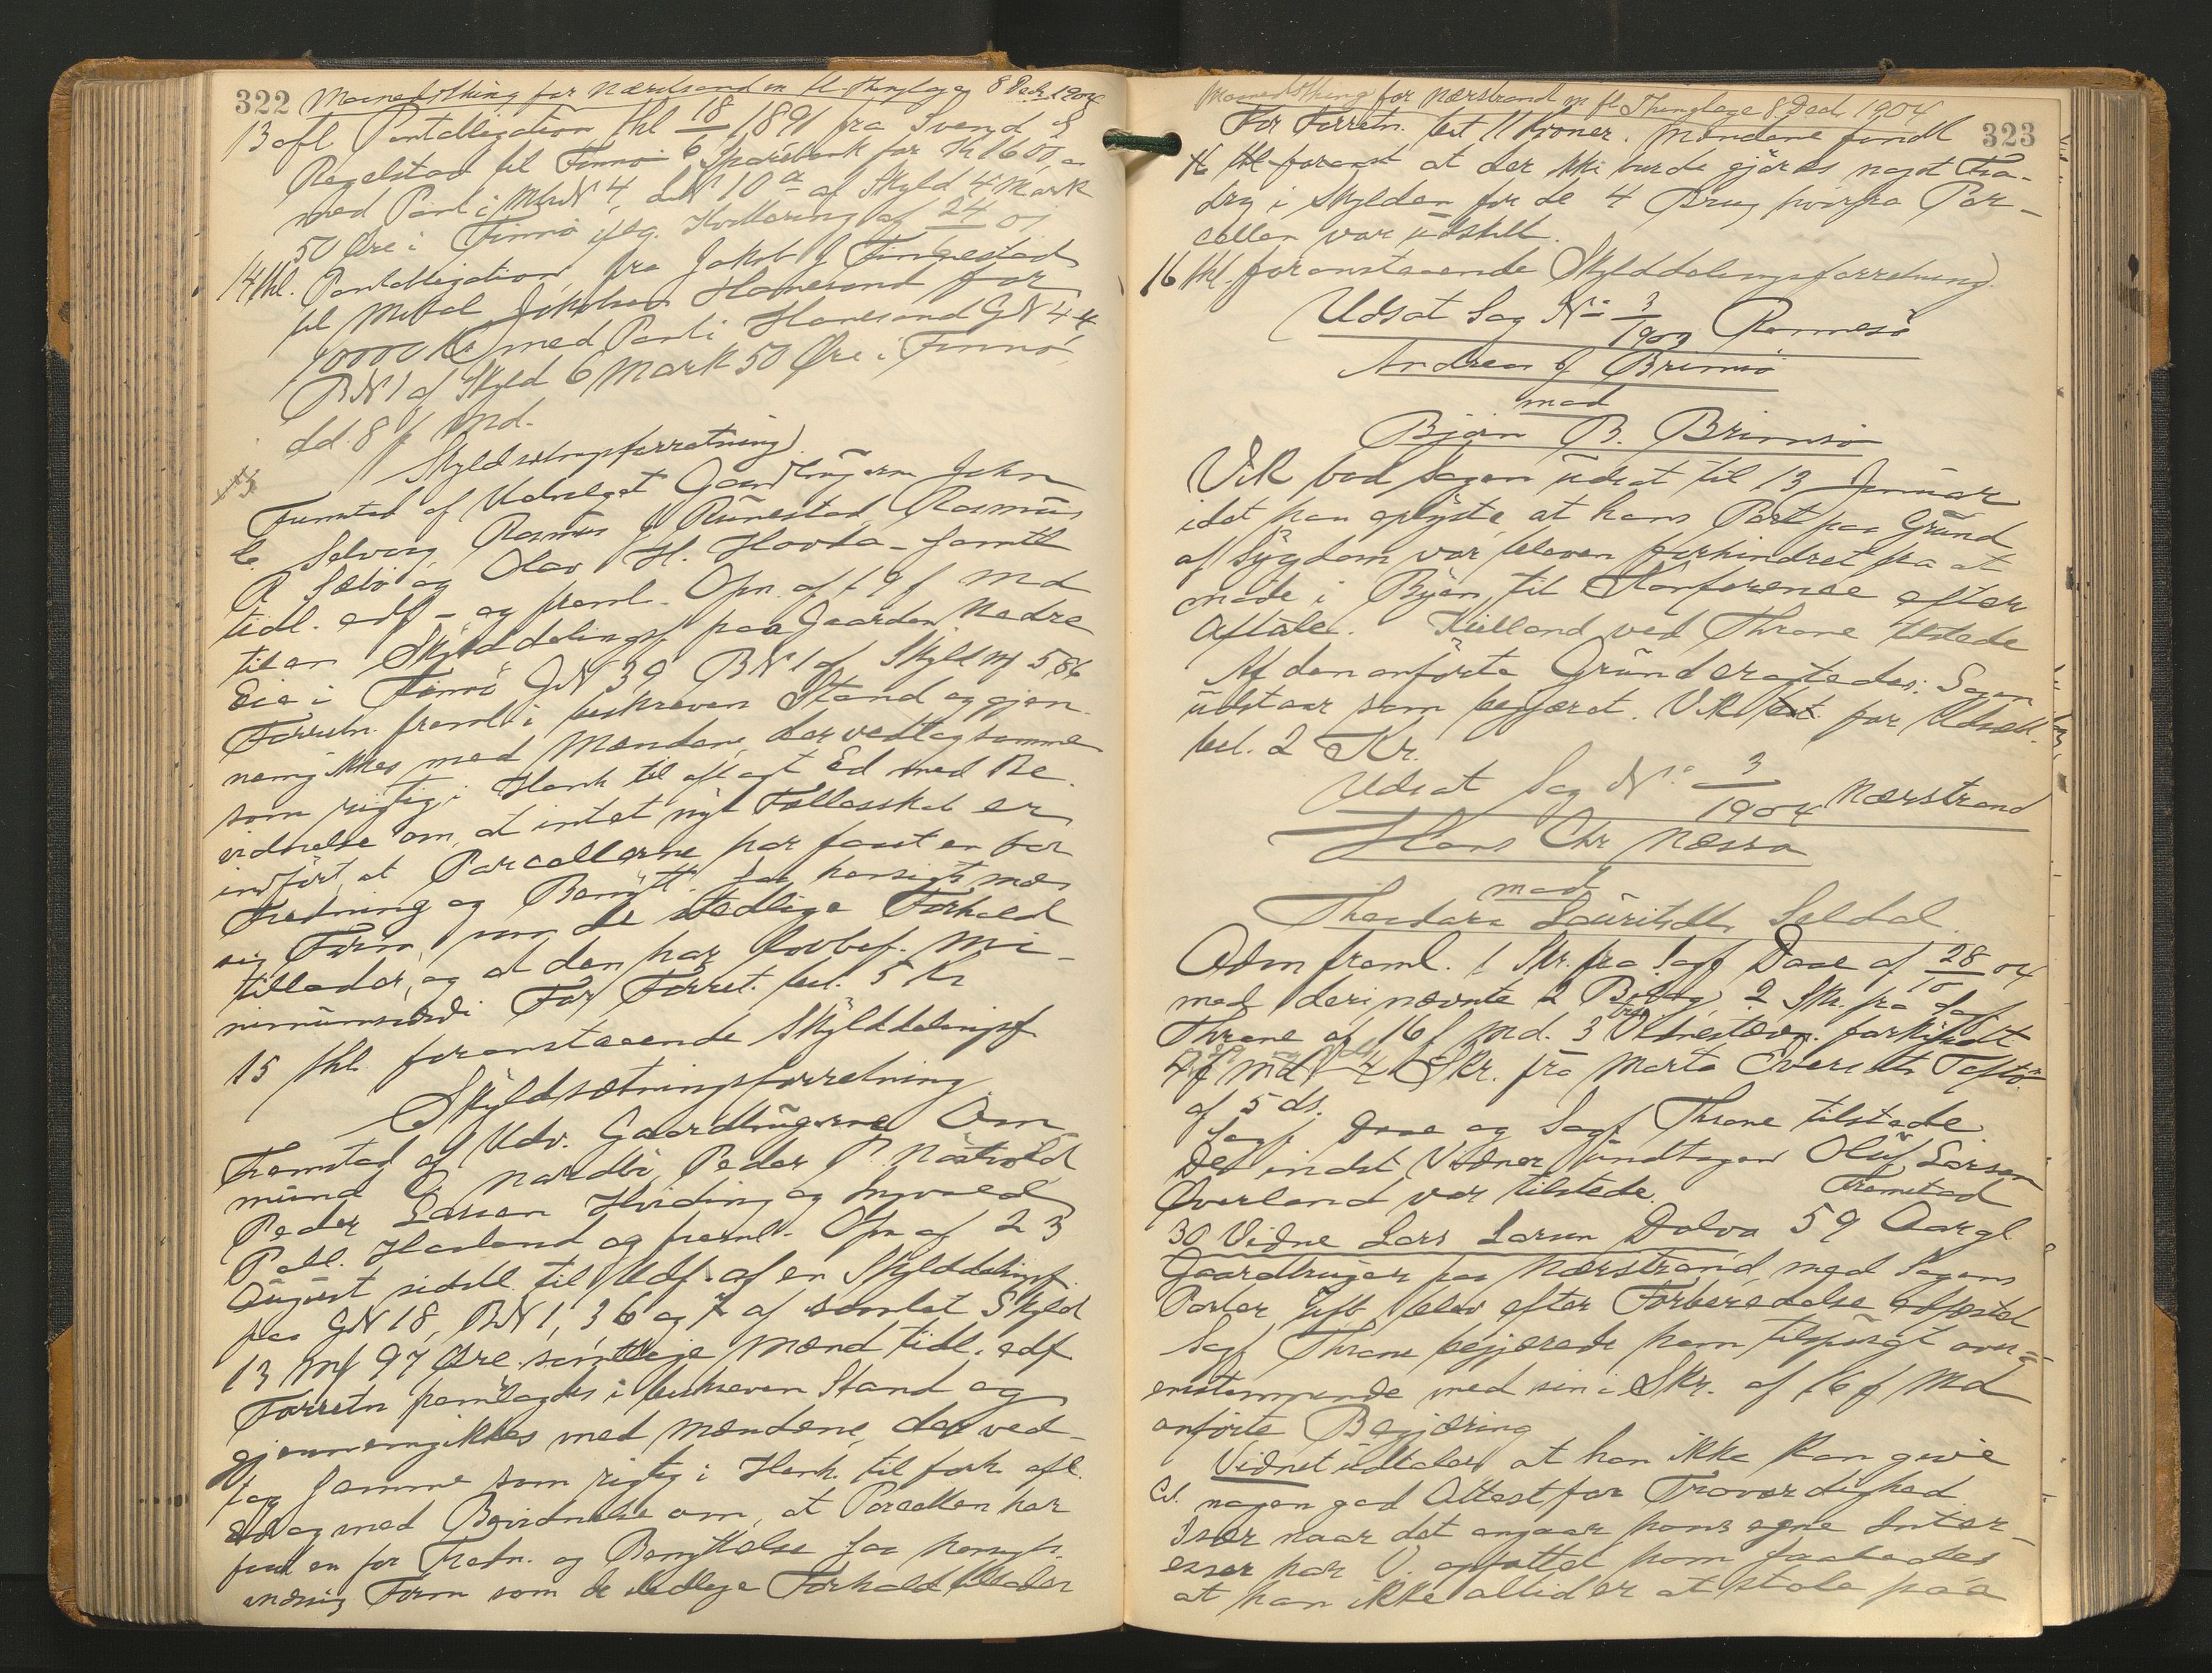 322 Maanedsthing for Nærstrand m fl. Thinglag 8 Dech 1904
13 afl Pantobligation thl 18/6 1891 fra Svend S
Regelstad til Finnø Sparebank for Kr 1600 –
med Pant i MN 4, LN 10 a af Skyld 4 Mark
50 Øre i Finnø ifлg. Kvittering af 24/6 01
14 thl. Pantobligation fra Jakob J
til Mikal Jakobsen Hanesand for
10000 Kr med Pant i Hanesand GN 44
BN 1 af Skyld 6 Mark 50 Øre i Finnø
dd. 8 f Md.
Skyldselingsforretning
Fremtod af Udvalget Gaardbrugerne John
E. Selvaag Rasmus J Runestad, Rasmus
R Sæbø og Olav H. Hovda – samtl
tidl. edf – og freml. Opn. af 19 f Md
til en Skylddelingsf paa Gaarden Nedre
Eie i Finnø GN 39 BN 1 af Skyld Mf 5,86
Forretn. freml i beskreven Stand og gjen-
nemgikkes med Mændene, der vedtog samme
som rigtig i Henh til aflagt Ed med Be-
vidnelse om, at intet nyt Fællesskab er
indført, at Parcellerne har faaet en for
Fredning og Benytt. saa hensigtsmæs
sig Form, som de stedlige Forhold
tillader, og at den har lovbef. Mi-
nimumsværdi For Forret. bet. 5 Kr
15 thl. foranstaaende Skylddelingsf
Skyldsætningsforretning
Fremstod af Udv. Gaardbrugerne Om
mund O. Nardbø, Peder P. Næstvold
Peder Larsen Hviding og Ingvald
Pall. Havland og freml. Opn af 23
August sidstl. til Udf. af en Skylddelingsf.
paa GN 18, BN 1, 3 6 og 7 af samlet Skyld
13 Mf 97 Øre samtlige Mænd tidl. edf
Forretn fremlagdes i beskreven Stand og
gjennemgikkes med Mændene, der ved-
tog samme som rigtig i Henh. til forh. afl.
Ed og med Bevidnelse om, at Parcellen har
faaet en for Fredn. og Benyttelse saa hensigts-
mæssig Form som de stedlige Forhold tillader
Maanedsthing for Nærstrand m fl Thinglage 8 Dech 1904
323
For Forretn. bet 11 Kroner. Mændene fandt
16 thl foranst at der ikke burde gjøres noget Fra-
drag i Skylden for de 4 Brug hvorfra Par-
cellen var udskilt.
16 thl. foranstaaende Skylddelingsforretning
Udsat Sag No 3/1903 Rennesø
Andreas J Brimsø
mod
Bjørn B. Brimsø
Vik bad Sagen udsat til 13 Januar
idet han oplyste at hans Part paa Grund
af Sygdom var bleven forhindret fra at
møde i Byen til Konference efter
Aftale. Kielland ved Thrane tilstede
Af den anførte Grund eragtedes: Sagen
udstaar som begjæret. Vik bet. for Udsætt.
bet. 2 Kr.
Udsat Sag No 3/1904 Nærstrand
Hans Chr Næssa
mod
Theodora Lauritsdtr. Seldal
Adm freml. 1 Skr. fra Sagf Daae af 28/10 04
med deri nævnte 2 Bilag, 2 Skr. fra Sagf
Thrane af 16 f Md. 3 Vidnestævn. forkyndt
4 Skr. fra Marta Evensdtr Toftø
af 5 ds.
Sagf. Daae og Sagf Thrane tilstede
De indst Vidner undtagen Oluf Larsen
Øverland var tilstede. Fremstod
30 Vidne Lars Larsen Dalva 59 Aar gl
Gaardbruger paa Nærstrand, med Sagens
Parter ubsl. blev efter Forberedelse edfæstet
Sagf Thrane begjærede ham tilspurgt over-
enstemmende med sin i Skr. af 16 f Md
anførte Begjæring
Vidnet udtaler at han ikke kan give
Cd. nogen god Attest for Troværdighed
Især naar det angaar hans egne Inter-
esser har V. opfattet ham saaledes
at han ikke altid er at stole paa